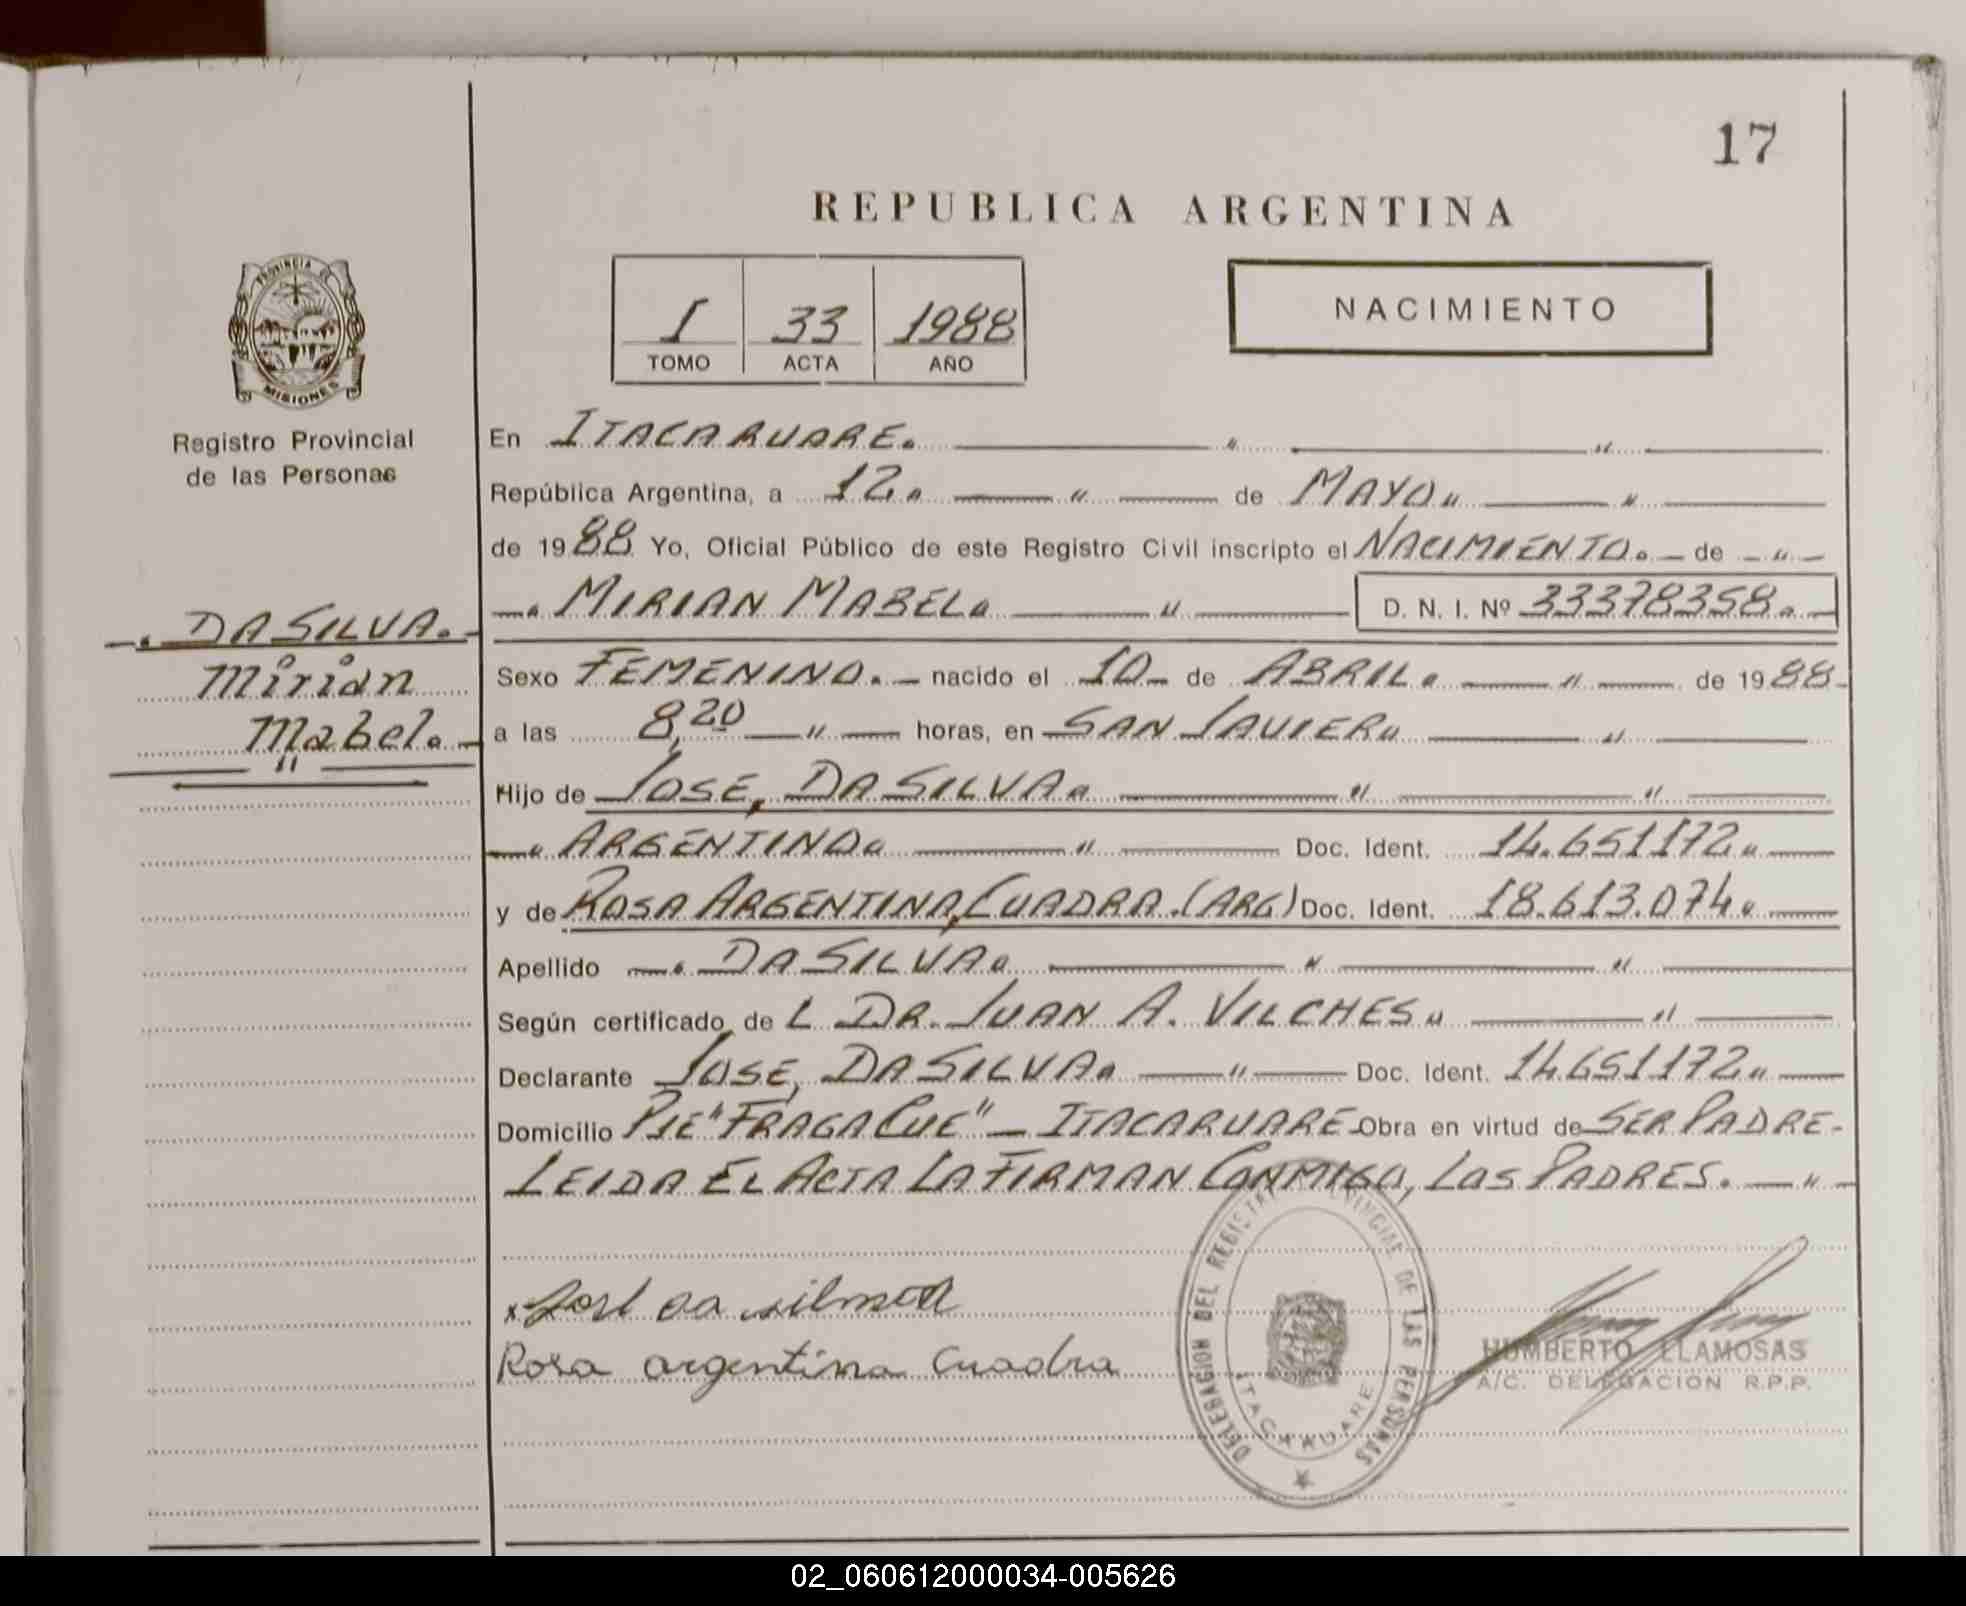 17
REPUBLICA ARGENTINA
PROVINCIA DE
MISIONES
Registro Provincial
de las Personas
I 33 1988
TOMO ACTA AÑO
NACIMIENTO
En ITACARUARE.
República Argentina, a 12. de MAYO
de 1988 Yo, Oficial Público de este Registro Civil inscripto el NACIMIENTO. de
MIRIAN MABEL. D. N. I. Nº 33378358.
DA SILVA.
Mirian
Mabel.
Sexo FEMENINO. nacido el 10 de ABRIL. de 1988
a las 8,20 horas, en SAN JAVIER
Hijo de JOSE, DA SILVA.
ARGENTINO. Doc. Ident. 14.651172
y de ROSA ARGENTINA, CUADRA.(ARG) Doc. Ident. 18.613.074.
Apellido DA SILVA.
Según certificado de L DR. JUAN A. VILCHES
Declarante JOSE, DA SILVA. Doc. Ident. 14.651172
Domicilio PJE "FRAGA CUE" - ITACARUARE Obra en virtud de SER PADRE-
LEIDA EL ACTA LA FIRMAN CONMIGO, LOS PADRES.
DELEGACION DEL REGISTRO PROVINCIAL DE LAS PERSONAS
ITACARUARE
x José da silva
Rosa argentina Cuadra
HUMBERTO LLAMOSAS
A/C. DELEGACION R.P.P.
02_060612000034-005626